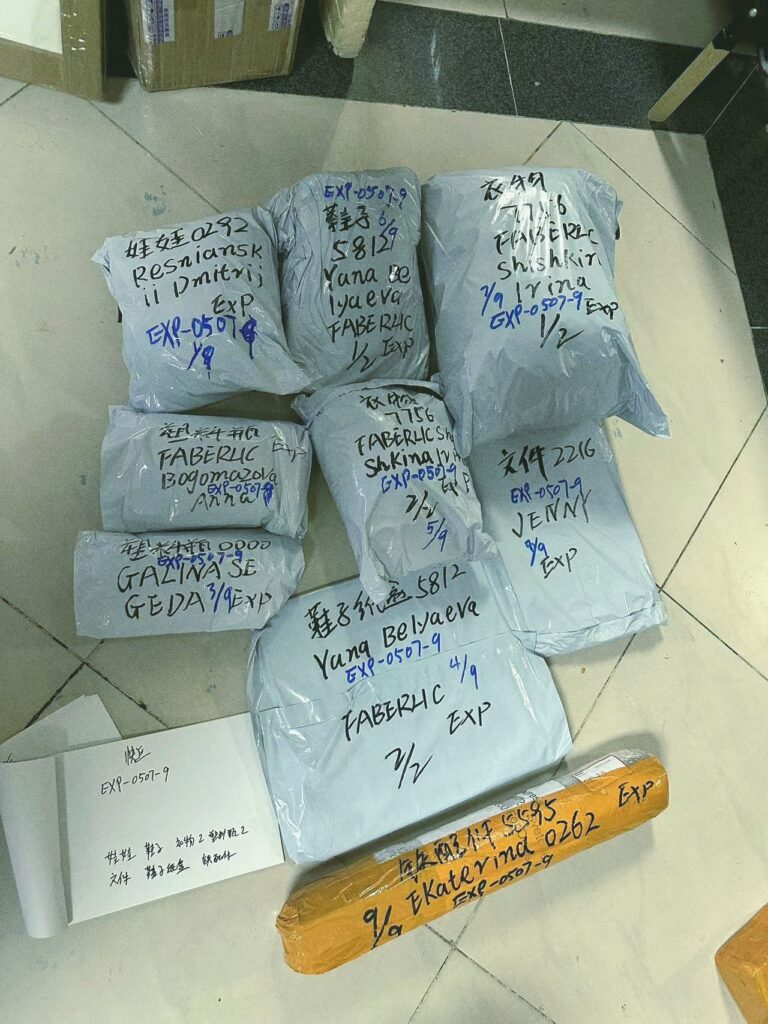 娃娃0292
Resniansk
ii Dmitrij
EXP
EXP-0507-9
1/9
EXP-0507-9
鞋子 6/9
5812
Yana Be
lyaeva
FABERLIC
1/2 EXP
衣物
7756
FABERLIC
Shishkin
7/9 Irina
EXP-0507-9 EXP
1/2
塑料瓶
FABERLIC EXP
Bogomazova
EXP-0507-9
Anna
衣物
7756
FABERLIC Shi
Shkina Iri
EXP-0507-9
EXP
2/2
5/9
文件 2216
EXP-0507-9
JENNY
8/9
EXP
塑料瓶 0000
EXP-0507-9
GALINA SE
GEDA 3/9 EXP
鞋子纸盒 5812
Yana Belyaeva
EXP-0507-9
4/9
FABERLIC
EXP
2/2
EXP-0507-9
娃娃 鞋子 衣物2 塑料瓶2
文件 鞋子纸盒 铁配件
配件 5595 EXP
Ekaterina 0262
9/9 EXP-0507-9